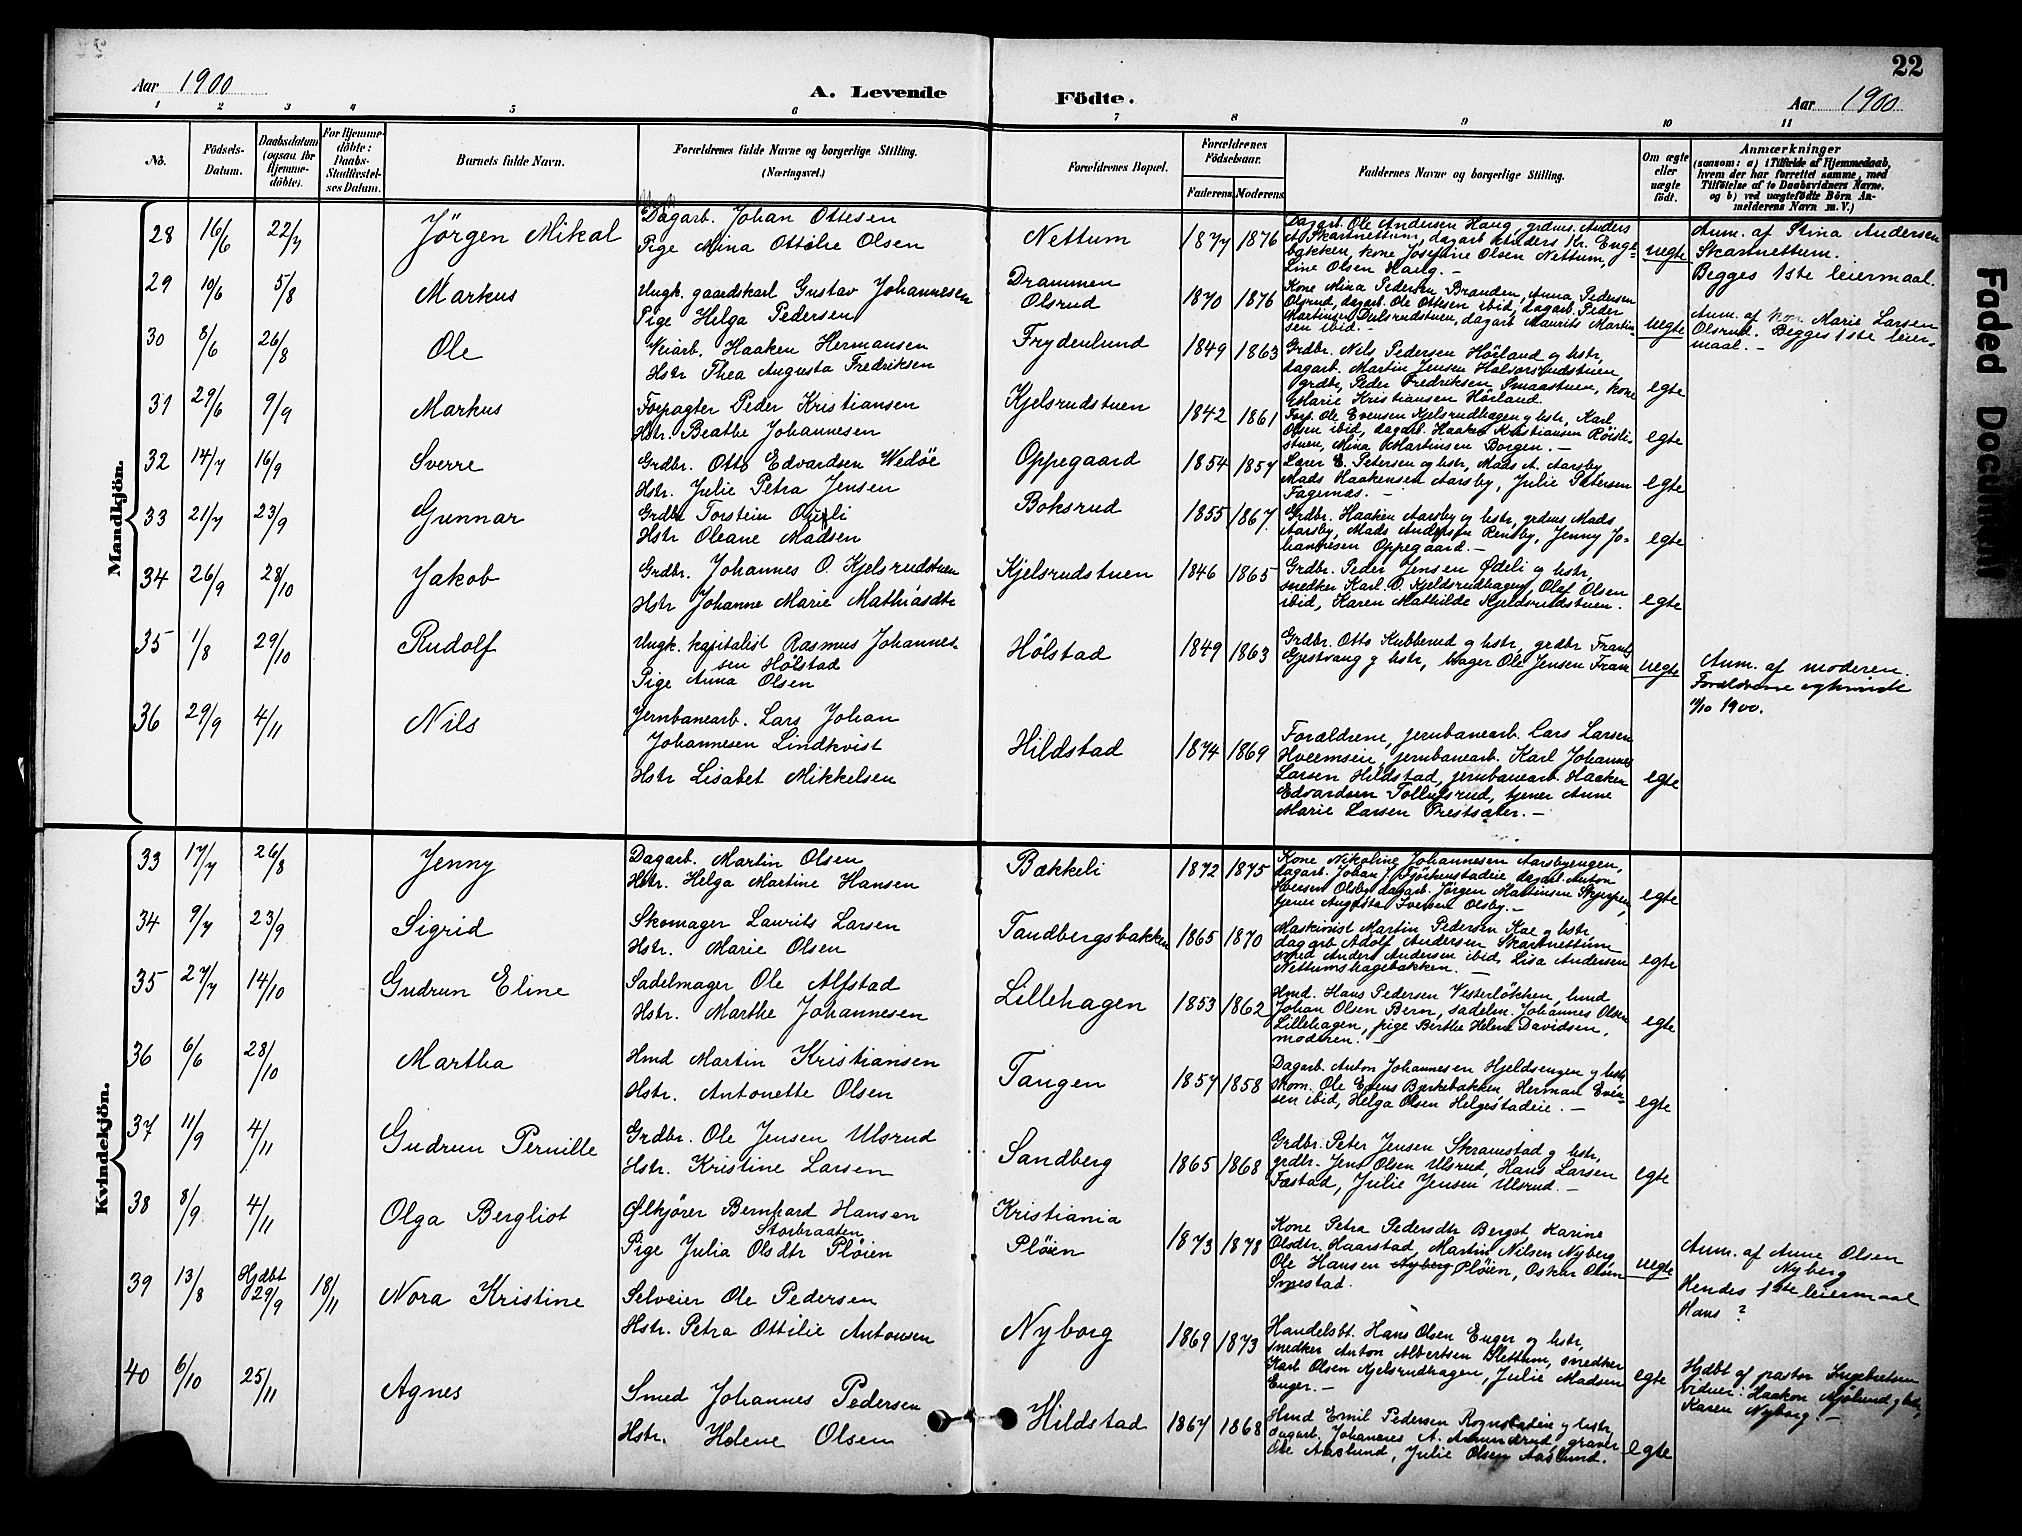 22
Aar 1900
A. Levende Födte.
Aar 1900
1 2 3 4 5 6 7 8 9 10 11
No.
Födsels-Datum.
Daabsdatum (ogsaa for Hjemmedöbte).
For Hjemmedöbte: Daabs-Stadfæstelses Datum.
Barnets fulde Navn.
Forældrenes fulde Navne og borgerlige Stilling.
(Næringsvei.)
Forældrenes Bopæl.
Forældrenes Födselsaar.
Faderens Moderens
Faddernes Navne og borgerlige Stilling.
Om ægte eller uægte födt.
Anmærkninger
(saasom: a) i Tilfælde af Hjemmedaab, hvem der har forrettet samme, med Tilföielse af to Daabsvidners Navne, og b) ved uægtefödte Börn Anmelderens Navn m. V.)
Mandkjön.
28 16/6 22/7 Jörgen Mikal
Dagarb. Johan Ottesen
Pige Mina Ottilie Olsen
Nettum 1877 1876
Dagarb. Ole Andersen Haug, grdms. Anders
A. Skartnettum, dagarb. Anders Kr. Enge-
bakken, kone Josefine Olsen Nettum,
Line Olsen Haug. —
uegte
Anm. af Stina Andersen
Skartnettum.
Begges 1ste leiermaal.
29 10/6 5/8 Markus
Ungk. gaardskarl Gustav Johannesen
Pige Helga Pedersen
Drammen
Olsrud
1870 1876
Kone Mina Pedersen Branden, Anna Pedersen
Olsrud, dagarb. Ole Ottesen ibid, dagarb. Peder
Martinsen Dulsrudstuen, dagarb. Maurits Martin-
sen ibid. —
uegte
Anm. af kone Marie Larsen
Olsrud. Begges 1ste leier-
maal. —
30 8/6 26/8 Ole
Veiarb. Haaken Hermansen
Hstr Thea Augusta Fredriksen
Frydenlund 1849 1863
Grdbr. Nils Pedersen Hörland og hstr,
dagarb. Martin Jensen Halsorsrudstuen,
grdbr, Peder Fredriksen Smaastuen, kone
Marie Kristiansen Hörland.
egte
31 29/6 9/9 Markus
Forpagter Peder Kristiansen
Hstr. Beathe Johannesen
Kjelsrudstuen 1842 1861
Forp. Ole Evensen Kjelsrudhagen og hstr, Karl
Olsen ibid, dagarb. Haaken Kristiansen Röisli-
stuen, Mina Martinsen Borgen. —
egte
32 14/7 16/9 Sverre
Grdbr. Otto Edvardsen Wedöe
Hstr. Julie Petra Jensen
Oppegaard 1854 1857
Lærer E. Petersen og hstr, Mads A. Aarsby,
Mads Haakensen Aarsby, Julie Petersen
Fagernæs. —
egte
33 21/7 23/9 Gunnar
Grdbr Torstein
Hstr Oleane Madsen
Boksrud 1855 1867
Grdbr. Haaken Aarsby og hstr, grdms Mads
Aarsby, Mads Andersen Rensby, Jenny Jo-
hannesen Oppegaard. —
egte
34 26/9 28/10 Jakob
Grdbr. Johannes O. Kjelsrudstuen
Hstr Johanne Marie Mathiasdtr
Kjelsrudstuen 1846 1865
Grdbr. Peder Jensen Ödeli og hstr,
snedker Karl O. Kjeldsrudhagen, Olef Olsen
ibid, Karen Mathilde Kjeldsrudstuen.
egte
35 1/8 29/10 Rudolf
Ungk. kapitalist Rasmus Johannes-
sen Hölstad
Pige Anna Olsen
Hölstad 1849 1863
Grdbr. Otto Kubberud og hstr, grdbr Frants
Gjestvang og hstr, bager Ole Jensen Fram
uegte
Anm. af moderen.
Forældrene egteviede
1900.
36 29/9 4/11 Nils
Jernbanearb. Lars Johan
Johannesen Lindkvist
Hstr Lisabet Mikkelsen
Hildstad 1874 1869
Forældrene, jernbanearb. Lars Larsen
Hveemseie, jernbanearb. Karl Johannes
Larsen Hildstad, jernbanearb. Haaken
Edvardsen Tollefsrud, tjener Anne
Marie Larsen Prestsæter. —
egte
Kvindekjön.
33 17/7 26/8 Jenny
Dagarb. Martin Olsen
Hstr. Helga Martine Hansen
Bækkeli 1872 1875
Kone Nikoline Johannesen Aarsbyengen,
dagarb. Johan J. Björkenstadeie dagarb. Anton
Iversen Olsby dagarb. Jörgen Martinsen
tjener Augusta Iversen Olsby. —
egte
34 9/7 23/9 Sigrid
Skomager Laurits Larsen
Hstr. Marie Olsen
Tandbergsbakken 1865 1870
Maskinist Martin Pedersen Kae og hstr,
dagarb. Adolf Andersen Skartnettum
smed Anders Andersen ibid, Lisa Andersen
Nettumshagebakken. —
egte
35 27/7 14/10 Gudrun Eline
Sadelmager Ole Alfstad
Hstr. Marthe Johannesen
Lillehagen 1853 1862
Hmd. Hans Pedersen Vesterlökken, hmd
Johan Olsen Bern, sadelm. Johannes Olsen
Lillehagen, pige Berthe Helene Davidsen,
moderen. —
egte
36 6/6 28/10 Martha
Hmd Martin Kristiansen
Hstr. Antonette Olsen
Tangen 1857 1858
Dagarb. Anton Johannesen Hjeldsengen og hstr
skom. Ole Evens Bjerkebakken, Herman Even-
sen ibid, Helga Olsen Helgestadeie. —
egte
37 11/9 4/11 Gudrun Pernille
Grdbr. Ole Jensen Ulsrud
Hstr. Kristine Larsen
Sandberg 1865 1868
Grdbr. Peter Jensen Skramstad og hstr,
grdbr. Jens Olsen Ulsrud, Hans Larsen
Fæstad, Julie Jensen Ulsrud. —
egte
38 8/9 4/11 Olga Bergliot
Ölkjører Bernhard Hansen
Storbraaten
Pige Julia Olsdtr Plöien
Kristiania
Plöien
1873 1878
Kone Petra Pedersdtr Berget, Karine
Olsdtr. Haarstad, Martin Nilsen Nyberg
Ole Hansen Nyberg Plöien, Oskar Olsen
Smestad.
uegte
Anm. af Anne Olsen
Nyberg
Hendes 1ste leiermaal
Hans ?
39 13/8 Hjdbt 29/9 18/11 Nora Kristine
Selveier Ole Pedersen
Hstr. Petra Ottilie Antonsen
Nyborg 1869 1873
Handelsbt. Hans Olsen Enger og hstr,
snedker Anton Albertsen Slettum, snedker
Karl Olsen Kjelsrudhagen, Julie Madsen
Enger. —
egte
Hjdbt af pastor
vidner: Haakon og hstr,
Karen Nyborg. —
40 6/10 25/11 Agnes
Smed Johannes Pedersen
Hstr. Helene Olsen
Hildstad 1867 1868
Hmd Emil Pedersen Rognstadeie og hstr,
dagarb. Johannes A. Amundrud, graver
Ole Aaslund, Julie Olsen Aaslund.
egte
Faded Document